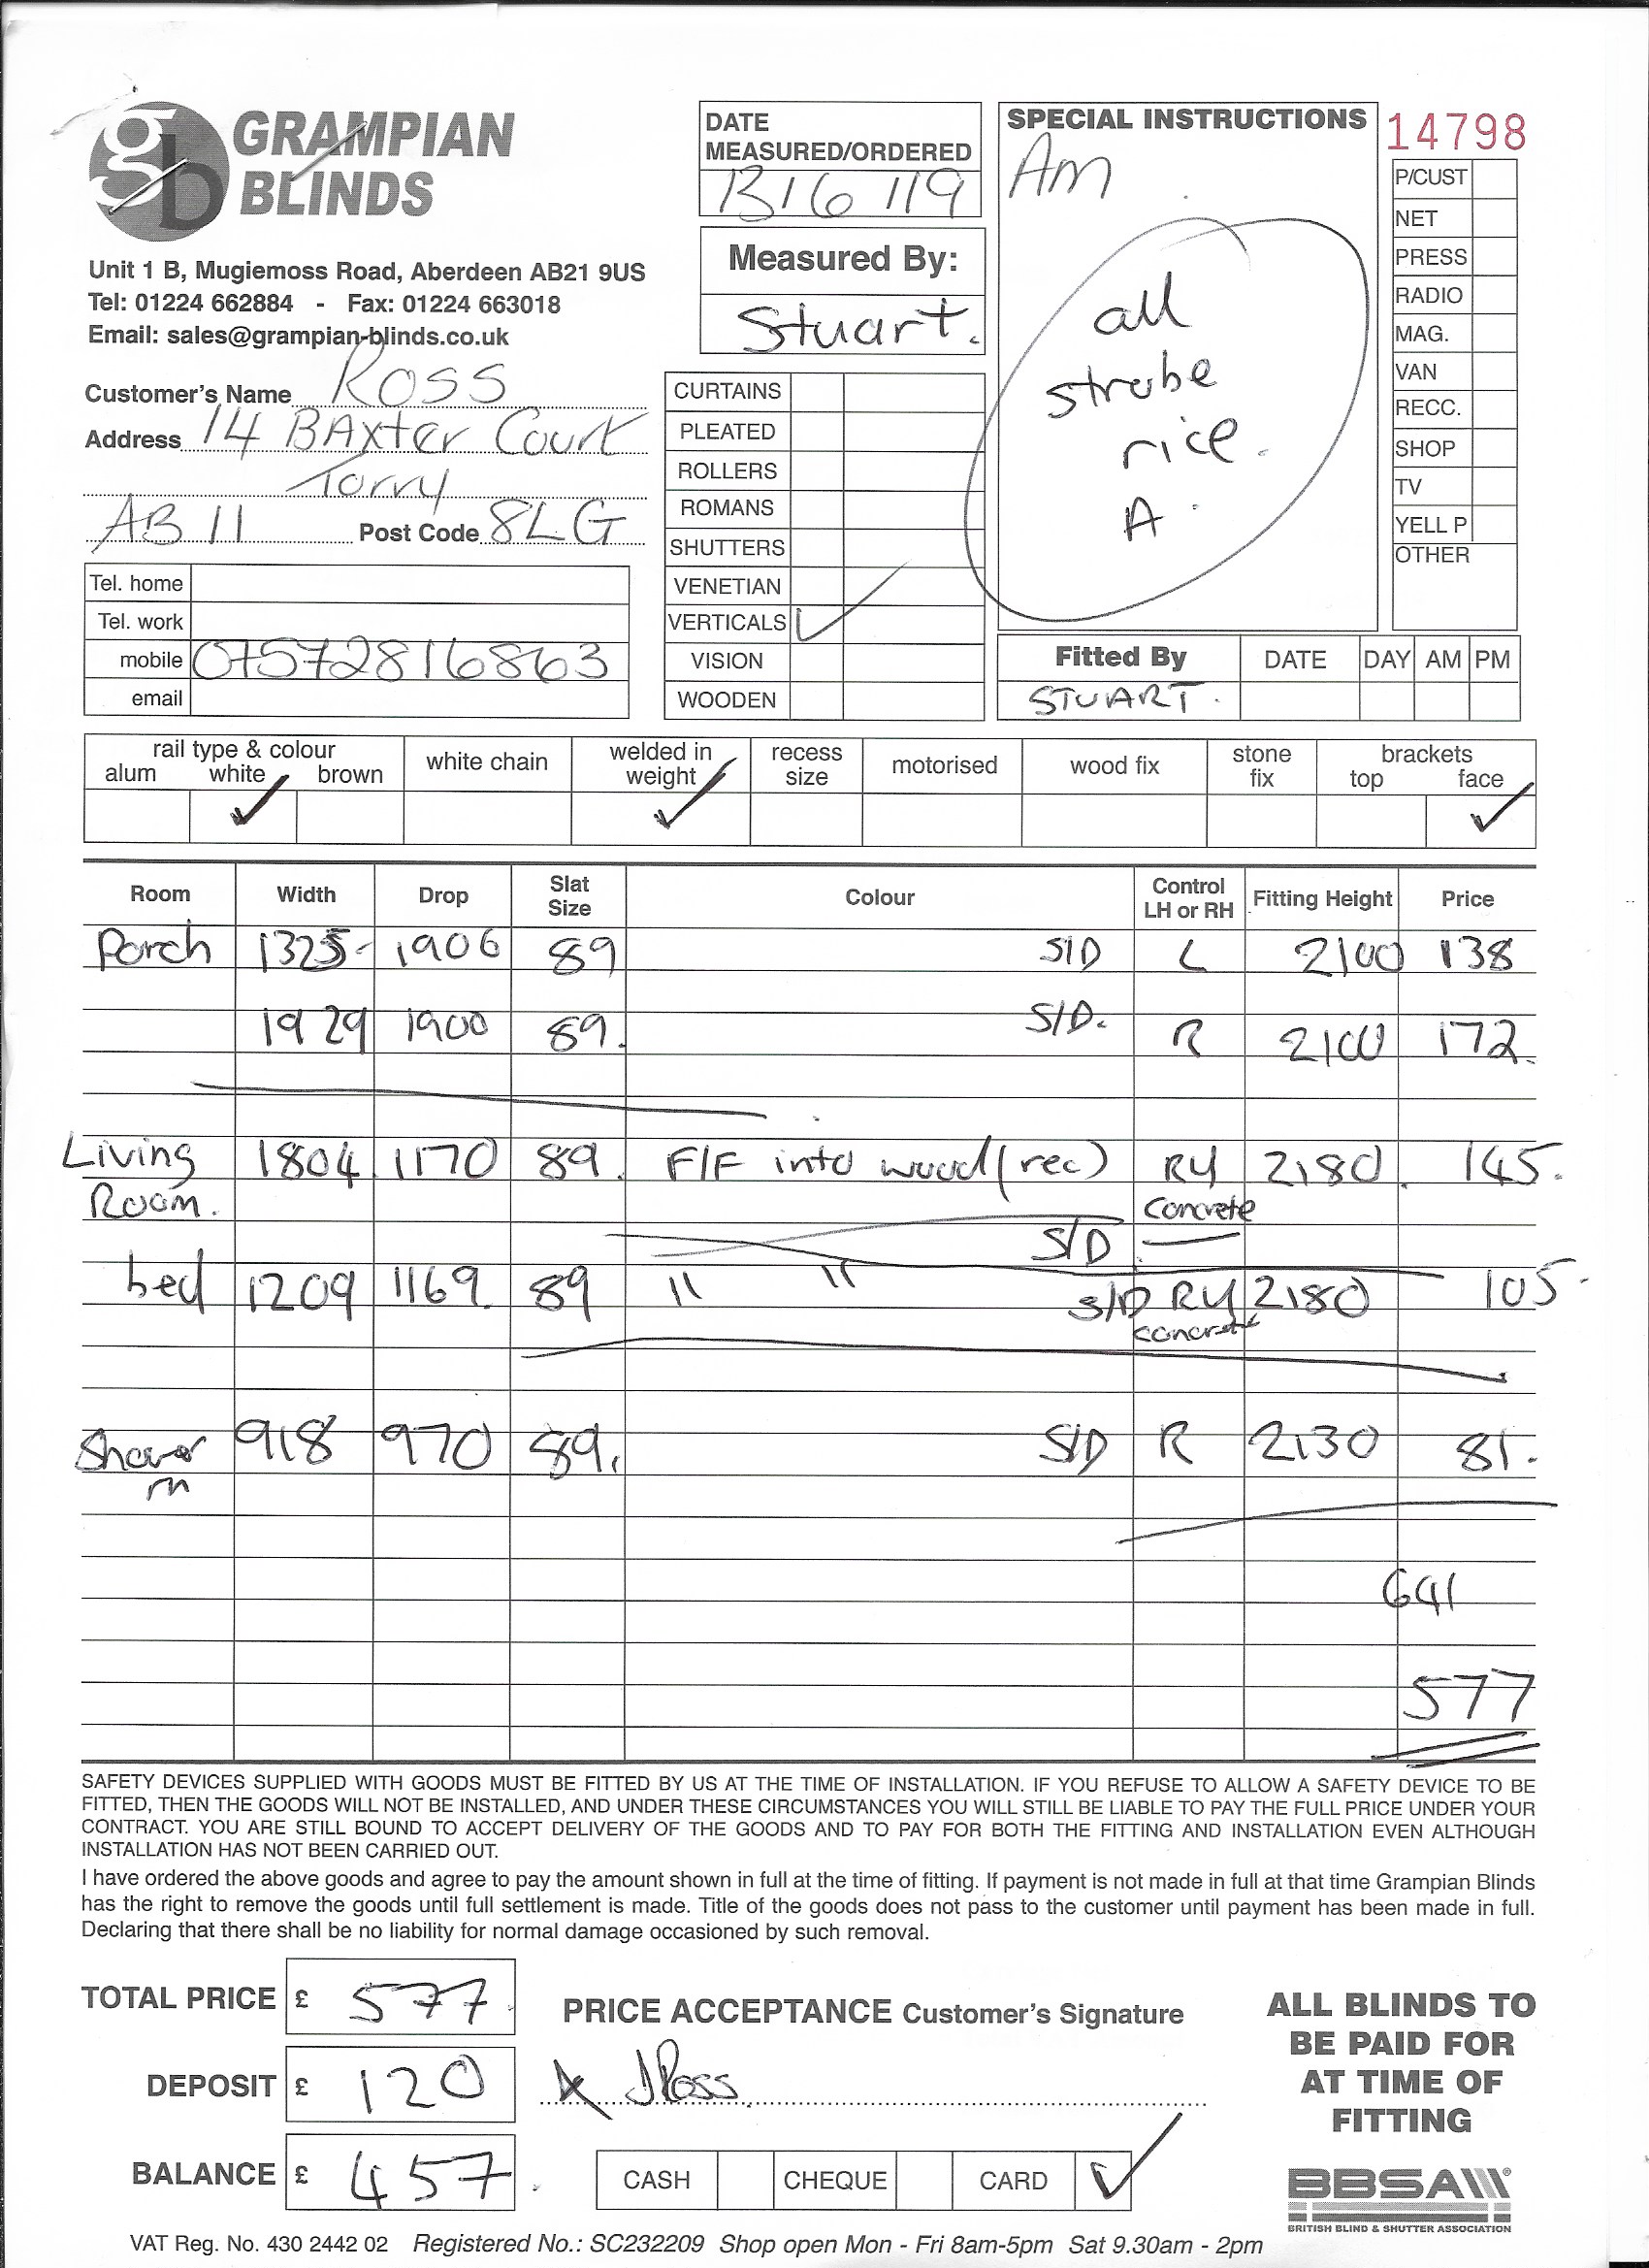 gb GRAMPIAN BLINDS
Unit 1 B, Mugiemoss Road, Aberdeen AB21 9US
Tel: 01224 662884 - Fax: 01224 663018
Email: sales@grampian-blinds.co.uk
Customer's Name Ross
Address 14 BAxter Court
Torry
AB 11 Post Code 8LG
Tel. home
Tel. work
mobile 07572816863
email
DATE MEASURED/ORDERED
13/6/19
Measured By:
Stuart.
CURTAINS
PLEATED
ROLLERS
ROMANS
SHUTTERS
VENETIAN
VERTICALS ✓
VISION
WOODEN
SPECIAL INSTRUCTIONS
Am
all
strobe
rice.
A
14798
P/CUST
NET
PRESS
RADIO
MAG.
VAN
RECC.
SHOP
TV
YELL P
OTHER
Fitted By DATE DAY AM PM
STUART.
rail type & colour
alum white ✓ brown
white chain
welded in weight ✓
recess size
motorised
wood fix
stone fix
brackets
top face ✓
Room Width Drop Slat Size Colour Control LH or RH Fitting Height Price
Porch 1325 1906 89 S/D L 2100 138
1929 1900 89. S/D. R 2100 172.
Living Room. 1804 1170 89. F/F into wood (rec) S/D RH concrete 2180. 145.
bed 1209 1169. 89 " " S/D RH concrete 2180 105.
Shower rm 918 970 89. S/D R 2130 81.
641
577
SAFETY DEVICES SUPPLIED WITH GOODS MUST BE FITTED BY US AT THE TIME OF INSTALLATION. IF YOU REFUSE TO ALLOW A SAFETY DEVICE TO BE
FITTED, THEN THE GOODS WILL NOT BE INSTALLED, AND UNDER THESE CIRCUMSTANCES YOU WILL STILL BE LIABLE TO PAY THE FULL PRICE UNDER YOUR
CONTRACT. YOU ARE STILL BOUND TO ACCEPT DELIVERY OF THE GOODS AND TO PAY FOR BOTH THE FITTING AND INSTALLATION EVEN ALTHOUGH
INSTALLATION HAS NOT BEEN CARRIED OUT.
I have ordered the above goods and agree to pay the amount shown in full at the time of fitting. If payment is not made in full at that time Grampian Blinds
has the right to remove the goods until full settlement is made. Title of the goods does not pass to the customer until payment has been made in full.
Declaring that there shall be no liability for normal damage occasioned by such removal.
TOTAL PRICE £ 577.
DEPOSIT £ 120
BALANCE £ 457.
PRICE ACCEPTANCE Customer's Signature
x JRoss
CASH CHEQUE CARD ✓
ALL BLINDS TO
BE PAID FOR
AT TIME OF
FITTING
BBSA
BRITISH BLIND & SHUTTER ASSOCIATION
VAT Reg. No. 430 2442 02 Registered No.: SC232209 Shop open Mon - Fri 8am-5pm Sat 9.30am - 2pm